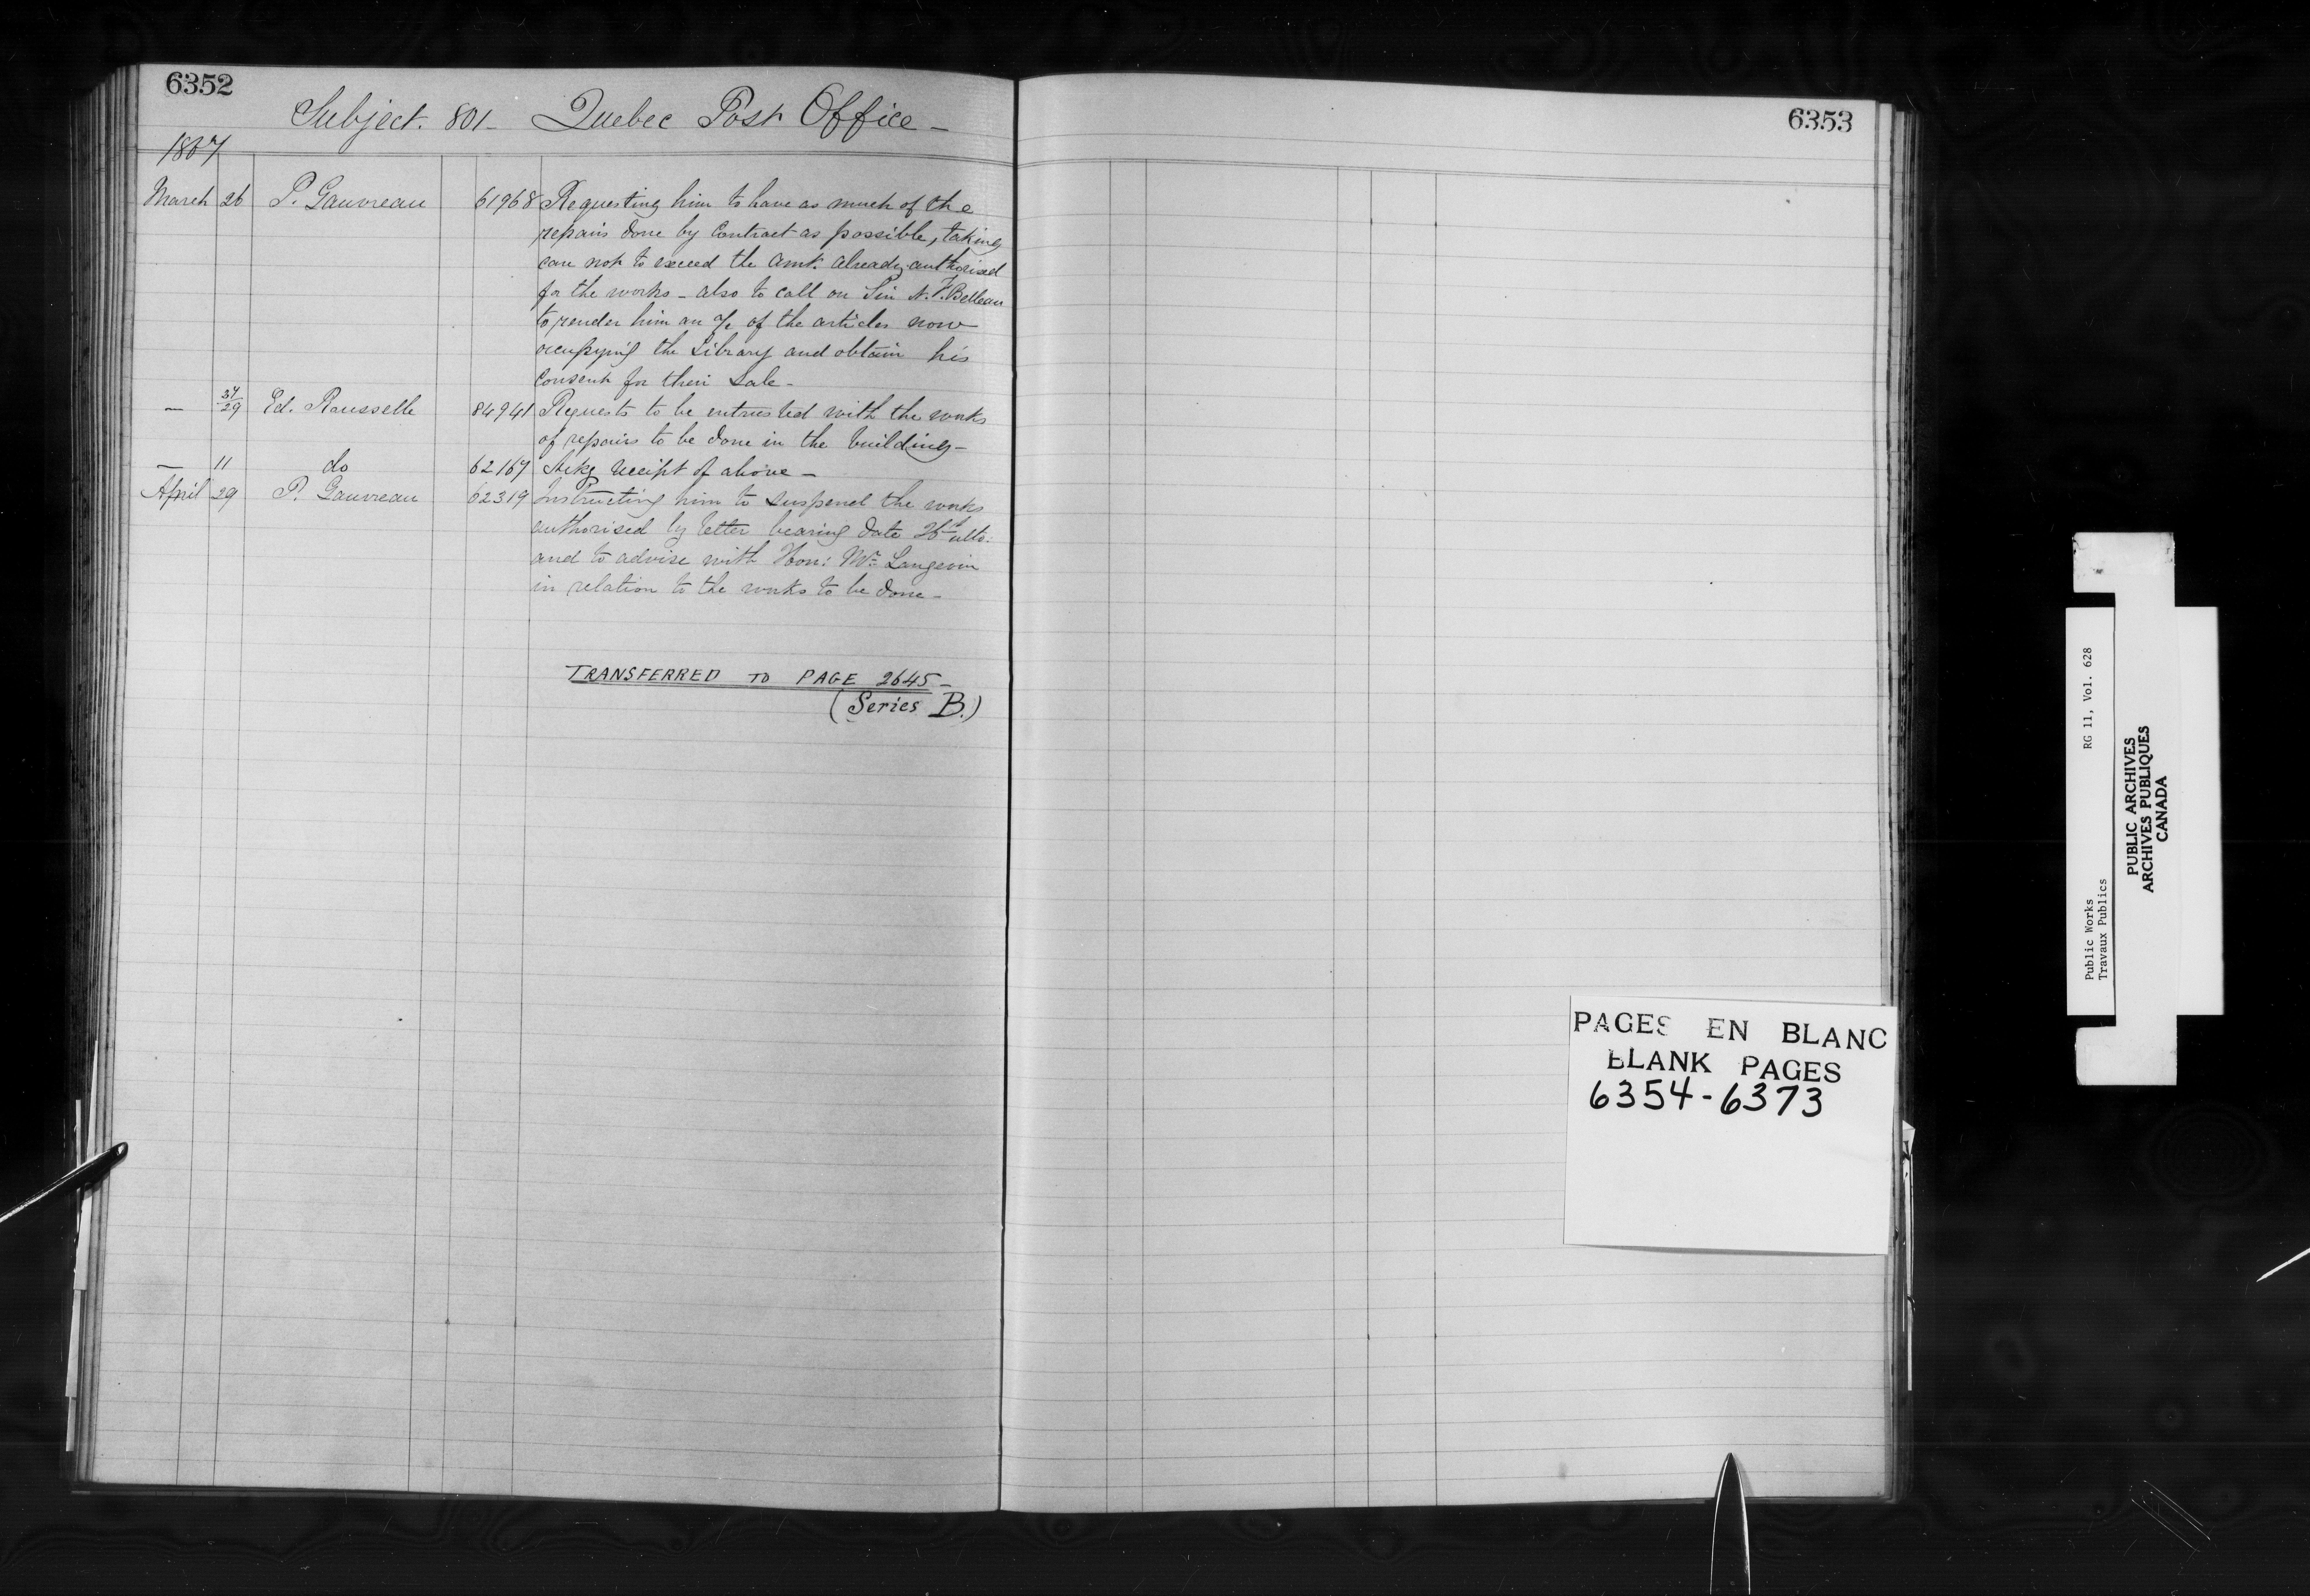 6352
Subject. 801 - Quebec Post Office -
1867
March 26 P. Gauvreau 61968 Requesting him to have as much of the
repairs done by Contract as possible, taking
care not to exceed the amt. already authorised
for the works - also to call on Sir N. F. Belleau
to render him an a/c of the articles now
occupying the Library and obtain his
Consent for their Sale -
— 27/29 Ed. Rousselle 84941 Requests to be entrusted with the works
of repairs to be done in the building -
— 11 do 62167 Ackg receipt of above -
April 29 P. Gauvreau 62319 Instructing him to suspend the works
authorised by letter bearing date 26th ulto:
and to advise with Hon: Mr Langevin
in relation to the works to be done -
TRANSFERRED TO PAGE 2645 -
(Series B.)
6353
PAGES EN BLANC
BLANK PAGES
6354-6373
Public Works RG 11, Vol. 628
Travaux Publics
PUBLIC ARCHIVES
ARCHIVES PUBLIQUES
CANADA